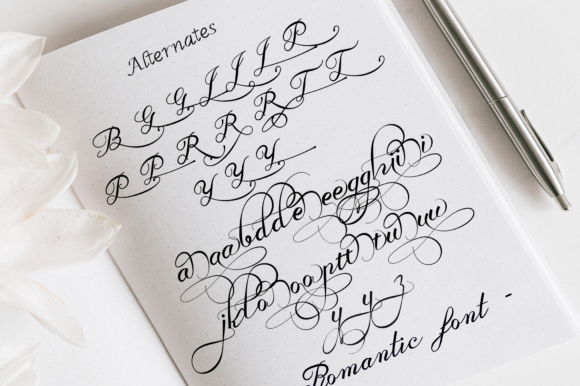 Alternates
B G G J J J P
P P R R R R T T
Y Y Y
a a a b d d d e e e g g h i i i
y y z
Romantic font -